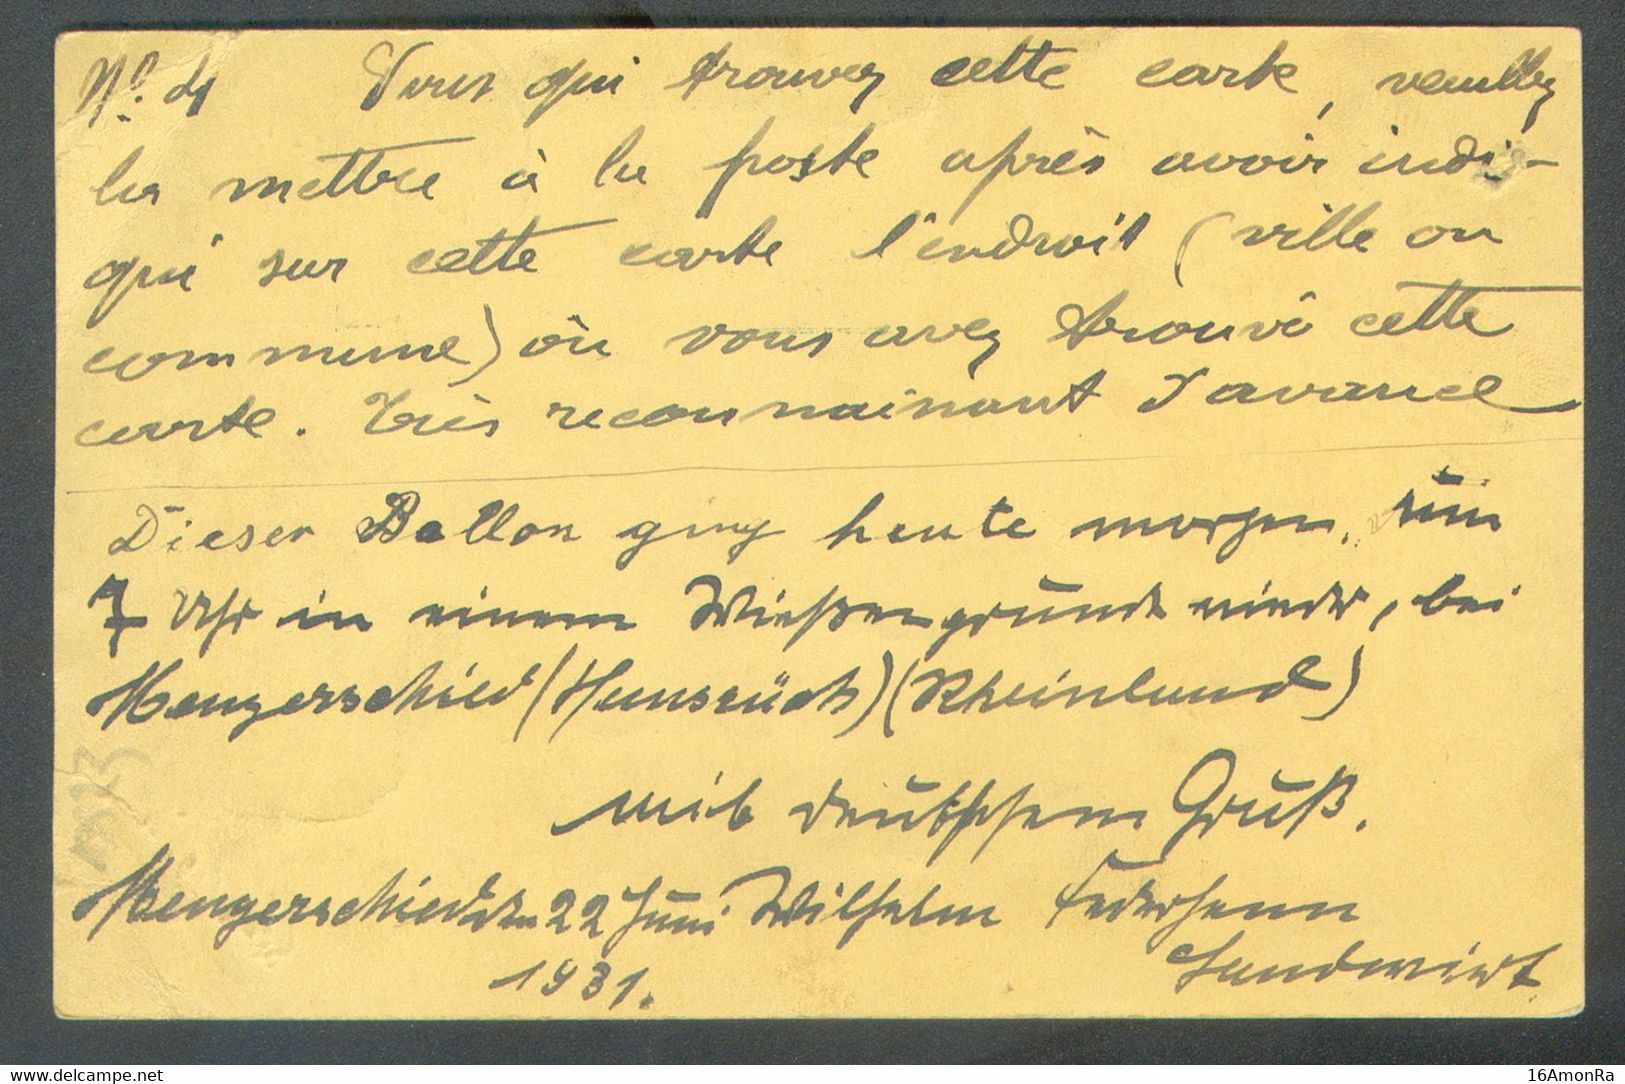 Vous qui trouvez cette carte, veuillez
la mettre à la poste après avoir indi-
qué sur cette carte l'endroit (ville ou
commune) où vous avez trouvé cette
carte. Très reconnaissant d'avance
Dieser Ballon ging heute morgen, um
7 Uhr in einem Wießengrunde nieder, bei
Mengerschied (Hunsrück) (Rheinland)
mit deutschem Gruß.
Mengerschied den 22 Juni Wilhelm
Landwirt
1931.
delcampe.net
16AmonRa